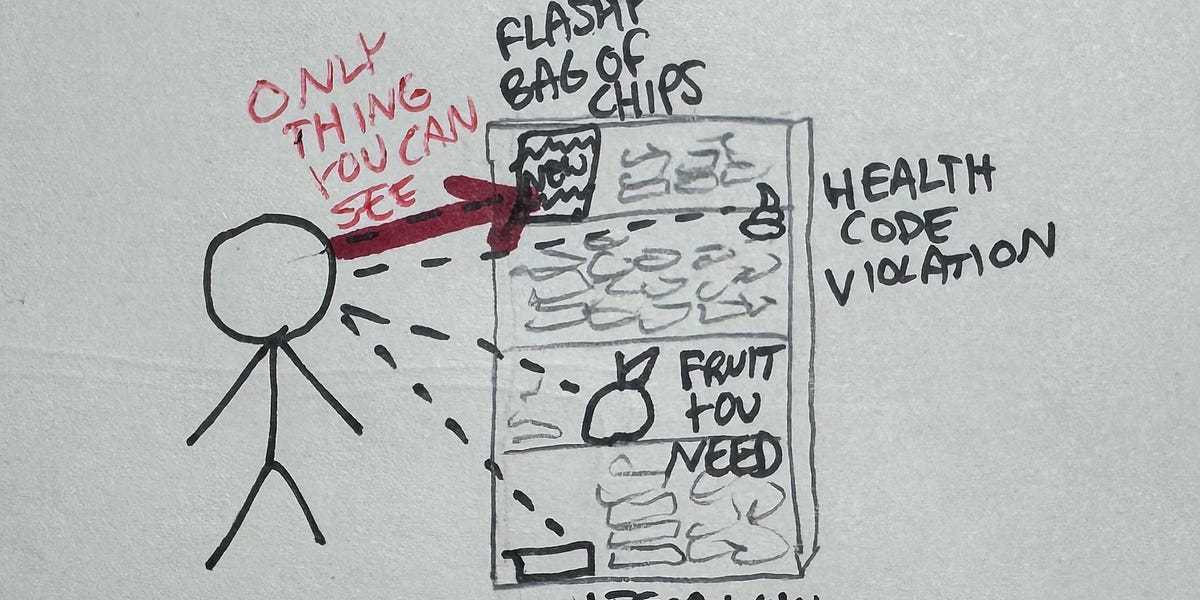 FLASHY
BAG OF
CHIPS
ONLY
THING
YOU CAN
SEE
NEW
HEALTH
CODE
VIOLATION
FRUIT
YOU
NEED